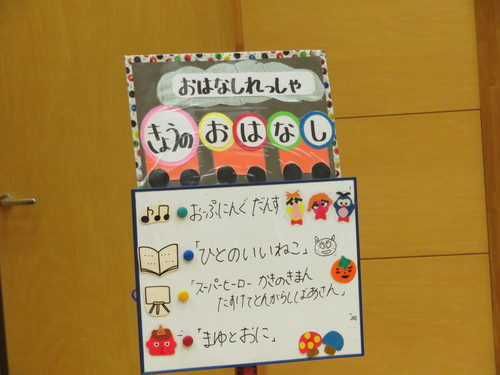 おはなしれっしゃ
きょうの おはなし
おーぷにんぐ だんす
「ひとのいいねこ」
「スーパーヒーロー かきのきまん
たすけてとんがらしばあさん」
「まゆとおに」